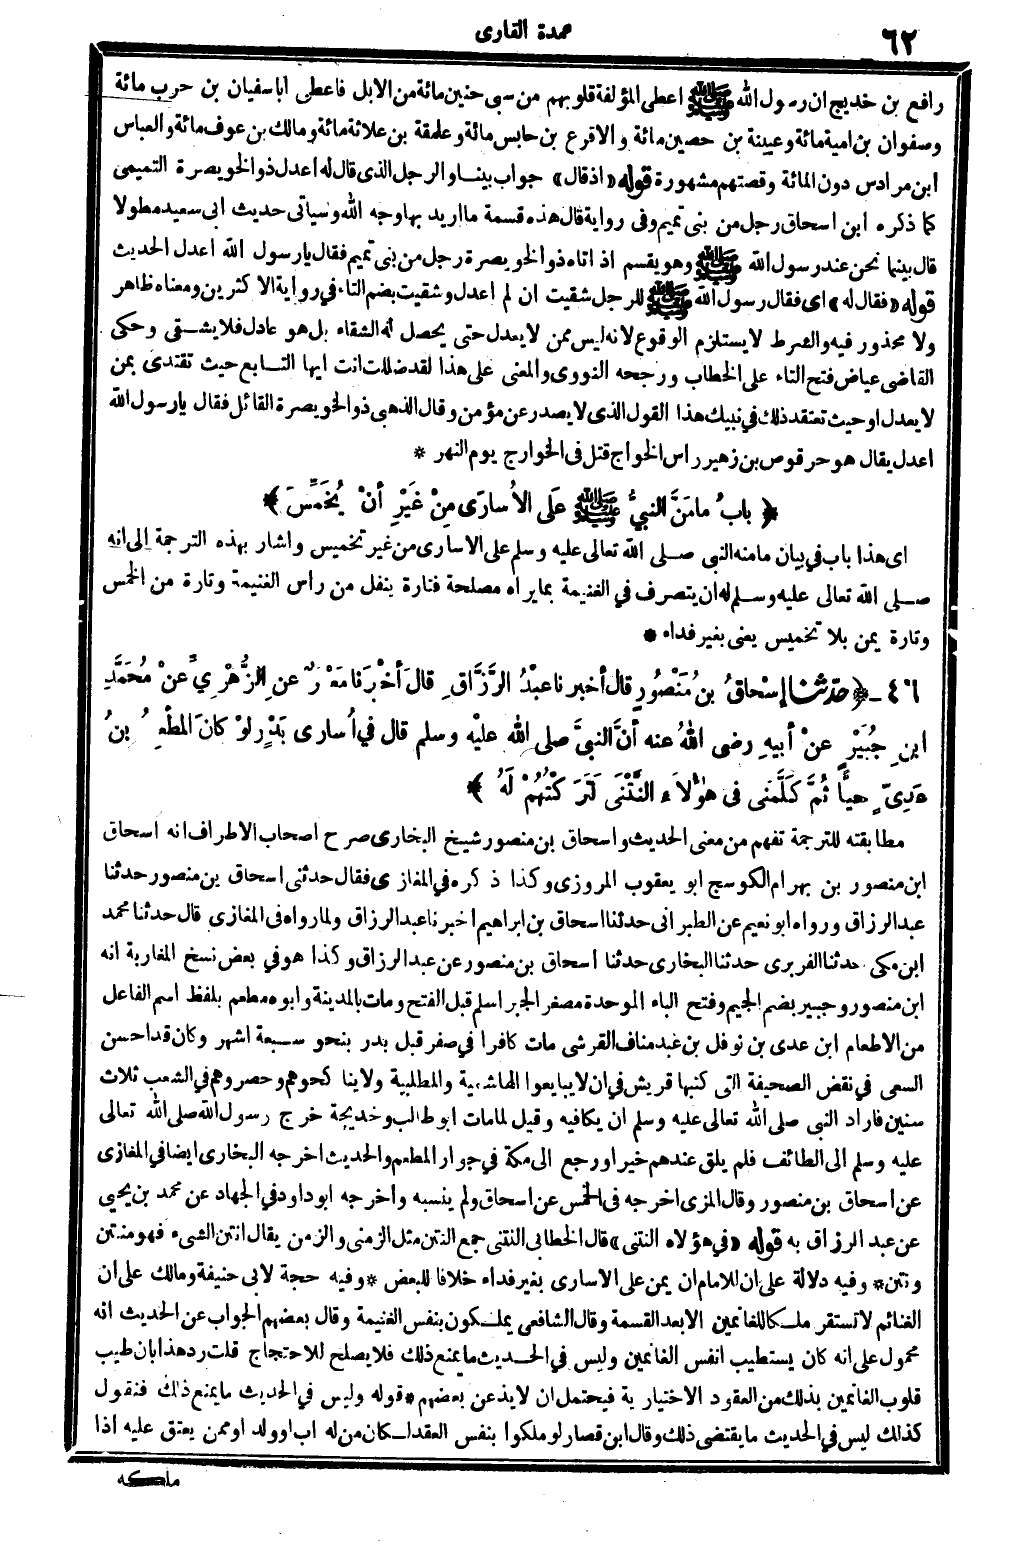 ٦٢
عمدة القارى
رافع بن خديج ان رسول الله ﷺ اعطى المؤلفة قلوبهم من سبى حنين مائة من الابل فاعطى اباسفيان بن حرب مائة
وصفوان بن امية مائة وعيينة بن حصين مائة والاقرع بن حابس مائة وعلقمة بن علاثة مائة ومالك بن عوف مائة والعباس
ابن مرادس دون المائة وقصتهم مشهورة قوله «اذقال» جواب بينا والرجل الذى قال له اعدل ذوالخويصرة التميمى
كما ذكره ابن اسحاق رجل من بنى تميم وفى رواية قال هذه قسمة ما اريد بها وجه الله وسياتى حديث ابى سعيد مطولا
قال بينما نحن عند رسول الله ﷺ وهو يقسم اذ اتاه ذوالخويصرة رجل من بنى تميم فقال يارسول الله اعدل الحديث
قوله «فقال له» اى فقال رسول الله ﷺ للرجل شقيت ان لم اعدل وشقيت بضم التاء في رواية الاكثرين ومعناه ظاهر
ولا محذور فيه والشرط لا يستلزم الوقوع لانه ليس ممن لا يعدل حتى يحصل له الشقاء بل هو عادل فلا يشقى وحكى
القاضى عياض فتح التاء على الخطاب ورجحه النووى والمعنى على هذا لقد ضللت انت ايها التابع حيث تقتدى بمن
لا يعدل او حيث تعتقد ذلك في نبيك هذا القول الذى لا يصدر عن مؤمن وقال الذهبى ذوالخويصرة القائل فقال يارسول الله
اعدل يقال هو حرقوص بن زهير راس الخواج قتل فى الخوارج يوم النهر *
﴿ بابُ مامَنَّ النبيُّ ﷺ عَلَى الأُسارَى مِنْ غَيْرِ أنْ يُخَمِّسَ ﴾
اى هذا باب في بيان مامنه النبى صلى الله تعالى عليه وسلم على الاسارى من غير تخميس واشار بهذه الترجمة الى انه
صلى الله تعالى عليه وسلم له ان يتصرف في الغنيمة بمايراه مصلحة فتارة ينفل من راس الغنيمة وتارة من الخمس
وتارة يمن بلا تخميس يعنى بغير فداء *
٤٦ - ﴿ حدَّثنا إسْحاقُ بنُ مَنْصُورٍ قال أخبرنا عبْدُ الرَّزَّاقِ قال أخْبَرَنا مَعْمَرٌ عنِ الزُّهْرِيِّ عنْ مُحَمَّدِ
ابنِ جُبَيْرٍ عنْ أبيهِ رضى اللهُ عنه أنَّ النبيَّ صلى الله عليْه وسلم قال في أُسارى بَدْرٍ لوْ كانَ المُطْعِمُ بنُ
عَدِىٍّ حيًّا ثُمَّ كَلَّمَنى فى هؤُلاَء النَّتْنَى لَتَرَكْتُهُمْ لَهُ ﴾
مطابقته للترجمة تفهم من معنى الحديث واسحاق بن منصور شيخ البخارى صرح اصحاب الاطراف انه اسحاق
ابن منصور بن بهرام الكوسج ابو يعقوب المروزى وكذا ذكره في المغازى فقال حدثنى اسحاق بن منصور حدثنا
عبدالرزاق ورواه ابونعيم عن الطبرانى حدثنا اسحاق بن ابراهيم اخبرنا عبدالرزاق ولما رواه فى المغازى قال حدثنا محمد
ابن مكى حدثنا الفربرى حدثنا البخارى حدثنا اسحاق بن منصور عن عبدالرزاق وكذا هو في بعض نسخ المغاربة انه
ابن منصور وجبير بضم الجيم وفتح الباء الموحدة مصغر الجبر اسلم قبل الفتح ومات بالمدينة وابوه مطعم بلفظ اسم الفاعل
من الاطعام ابن عدى بن نوفل بن عبدمناف القرشى مات كافرا في صفر قبل بدر بنحو سبعة اشهر وكان قد احسن
السعى في نقض الصحيفة التى كتبها قريش في ان لا يبايعوا الهاشمية والمطلبية ولا ينا كحوهم وحصروهم في الشعب ثلاث
سنين فاراد النبى صلى الله تعالى عليه وسلم ان يكافيه وقيل لمامات ابوطالب وخديجة خرج رسول الله صلى الله تعالى
عليه وسلم الى الطائف فلم يلق عندهم خيرا ورجع الى مكة في جوار المطعم والحديث اخرجه البخارى ايضا في المغازى
عن اسحاق بن منصور وقال المزى اخرجه فى الخمس عن اسحاق ولم ينسبه واخرجه ابوداود في الجهاد عن محمد بن يحيى
عن عبد الرزاق به قوله «في هؤلاء النتنى» قال الخطابى النتنى جمع النتن مثل الزمنى والزمن يقال انتن الشىء فهو منتن
ونتن * وفيه دلالة على ان للامام ان يمن على الاسارى بغير فداء خلافا للبعض * وفيه حجة لابى حنيفة ومالك على ان
الغنائم لا تستقر ملكا للغانمين الابعد القسمة وقال الشافعى يملكون بنفس الغنيمة وقال بعضهم الجواب عن الحديث انه
محمول على انه كان يستطيب انفس الغانمين وليس في الحديث ما يمنع ذلك فلا يصلح للاحتجاج قلت رد هذا بان طيب
قلوب الغانمين بذلك من العقود الاختيارية فيحتمل ان لا يذعن بعضهم * قوله وليس في الحديث ما يمنع ذلك فنقول
كذلك ليس في الحديث ما يقتضى ذلك وقال ابن قصار لو ملكوا بنفس العقد لكان من له اب او ولد او ممن يعتق عليه اذا
ملكه